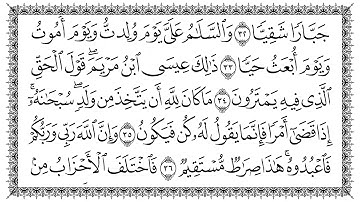 جَبَّارًا شَقِيًّا ﴿٣٢﴾ وَالسَّلَامُ عَلَىَّ يَوْمَ وُلِدتُّ وَيَوْمَ أَمُوتُ
وَيَوْمَ أُبْعَثُ حَيًّا ﴿٣٣﴾ ذَٰلِكَ عِيسَى ابْنُ مَرْيَمَ ۚ قَوْلَ الْحَقِّ
الَّذِى فِيهِ يَمْتَرُونَ ﴿٣٤﴾ مَا كَانَ لِلَّهِ أَن يَتَّخِذَ مِن وَلَدٍ ۖ سُبْحَٰنَهُۥٓ ۚ
إِذَا قَضَىٰٓ أَمْرًا فَإِنَّمَا يَقُولُ لَهُۥ كُن فَيَكُونُ ﴿٣٥﴾ وَإِنَّ اللَّهَ رَبِّى وَرَبُّكُمْ
فَاعْبُدُوهُ ۚ هَٰذَا صِرَٰطٌ مُّسْتَقِيمٌ ﴿٣٦﴾ فَاخْتَلَفَ الْأَحْزَابُ مِنۢ